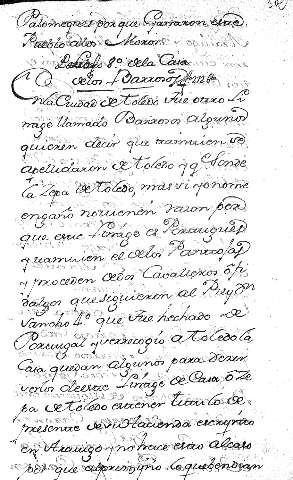 Palomeques por que ganaron este
Pueblo a los Moros.
8º de la Casa
de los Barrosos
En la Ciudad de toledo fue otro Li
nage llamado Barrosos algunos
quieren decir que tamvien se
apellidaron de toledo y q.e son de
la Zepa de toledo, mas si yo no me
engaño no tienen razon por
que este Linage es Portugues
y tamvien el de los Pantojas
y proceden de dos Cavalleros
dalgos que siguieron al Rey Dn
Sancho que fue hechado de
Portugal y se recogio a toledo la
Casa quedan algunos para
de este Linage de Casa o Ze
pa de toledo es tener titulo de
de su Hacienda escripto
en Aravigo y no hace esto al caso
por que al principio lo que